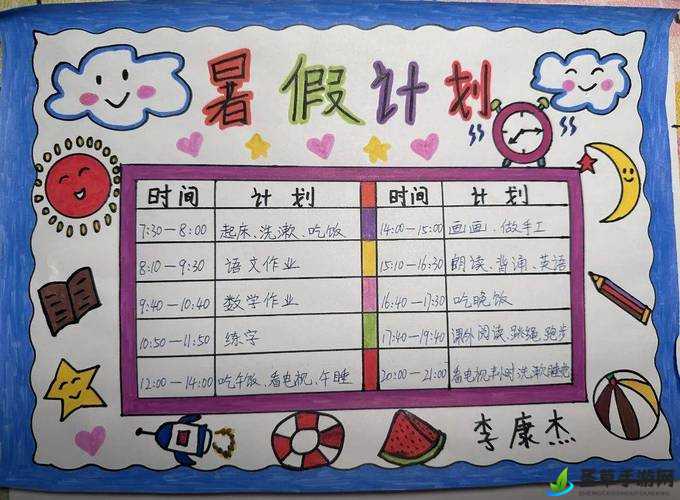 暑假计划
时间 计划 时间 计划
7:30—8:00 起床、洗漱、吃饭 14:00—15:00 画画、做手工
8:10—9:30 语文作业 15:10—16:30 朗读、背诵、英语
9:40—10:40 数学作业 16:40—17:30 吃晚饭
10:50—11:50 练字 17:40—19:40 课外阅读、跳绳、跑步
12:00—14:00 吃午饭、看电视、午睡 20:00—21:00 看电视半小时洗漱睡觉
李康杰
圣草手游网